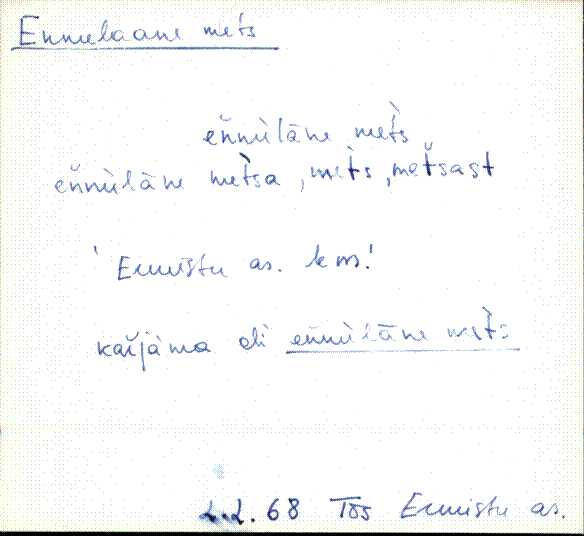 Ennulaane mets
eňnùlāne met̀s
eňnùlāne mèt̀sa, mèt̀s, met̆sast
Ermistu as. kms!
karjàma oli eňnùlāne met̀s
2.2.68 Tõs Ermistu as.